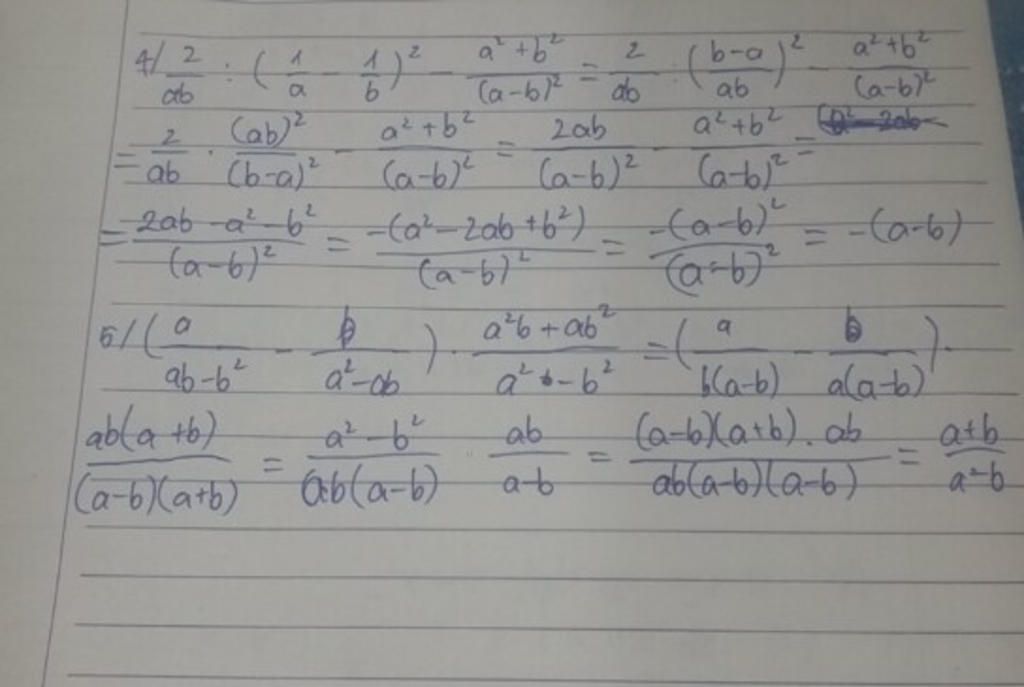 4/ 2/ab : (1/a - 1/b)² - (a²+b²)/(a-b)² = 2/ab : ((b-a)/ab)² - (a²+b²)/(a-b)²
= 2/ab · (ab)²/(b-a)² - (a²+b²)/(a-b)² = 2ab/(a-b)² - (a²+b²)/(a-b)² =
= (2ab-a²-b²)/(a-b)² = -(a²-2ab+b²)/(a-b)² = -(a-b)²/(a-b)² = -(a-b)
5/ (a/(ab-b²) - b/(a²-ab)) · (a²b+ab²)/(a²-b²) = (a/(b(a-b)) - b/(a(a-b))) ·
ab(a+b)/((a-b)(a+b)) = (a²-b²)/(ab(a-b)) · ab/(a-b) = ((a-b)(a+b).ab)/(ab(a-b)(a-b)) = (a+b)/(a-b)